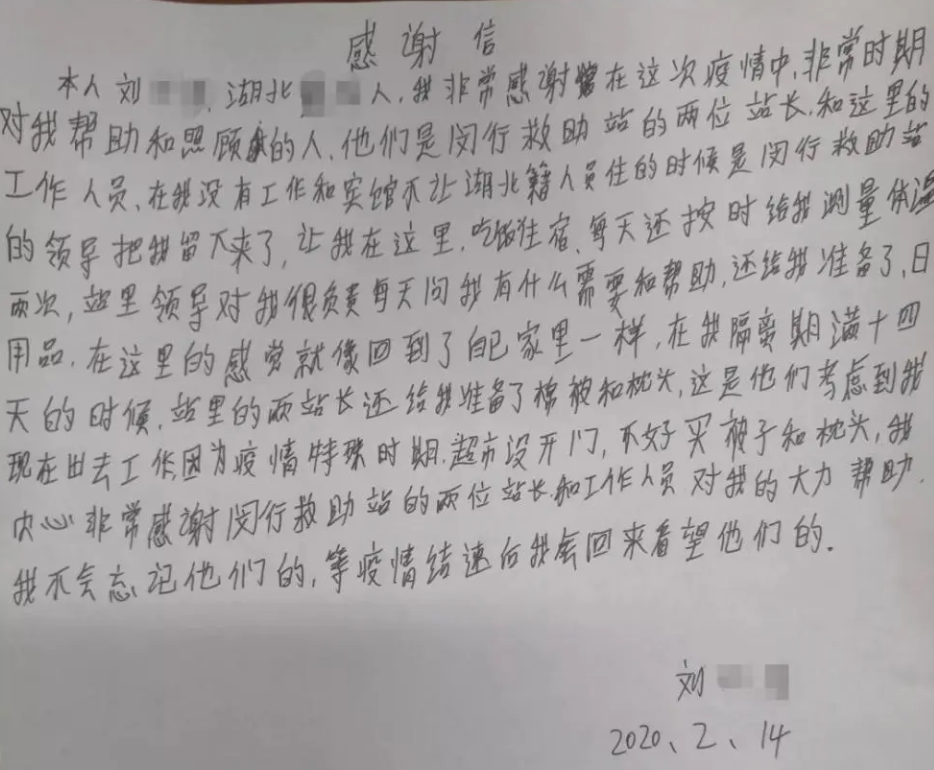 感谢信
本人刘 湖北 人,我非常感谢在这次疫情中,非常时期
对我帮助和照顾的人,他们是闵行救助站的两位站长.和这里的
工作人员,在我没有工作和宾馆不让湖北籍人员住的时候是闵行救助站
的领导把我留下来了,让我在这里.吃饭住宿、每天还按时给我测量体温
两次,站里领导对我很负责每天问我有什么需要和帮助,还给我准备了,日
用品.在这里的感觉就像回到了自己家里一样,在我隔离期满十四
天的时候.站里的两站长还给我准备了棉被和枕头,这是他们考虑到我
现在出去工作,因为疫情特殊时期.超市没开门,不好买被子和枕头,我
内心非常感谢闵行救助站的两位站长和工作人员对我的大力帮助.
我不会忘记他们的,等疫情结速后我会回来看望他们的.
刘
2020、2、14